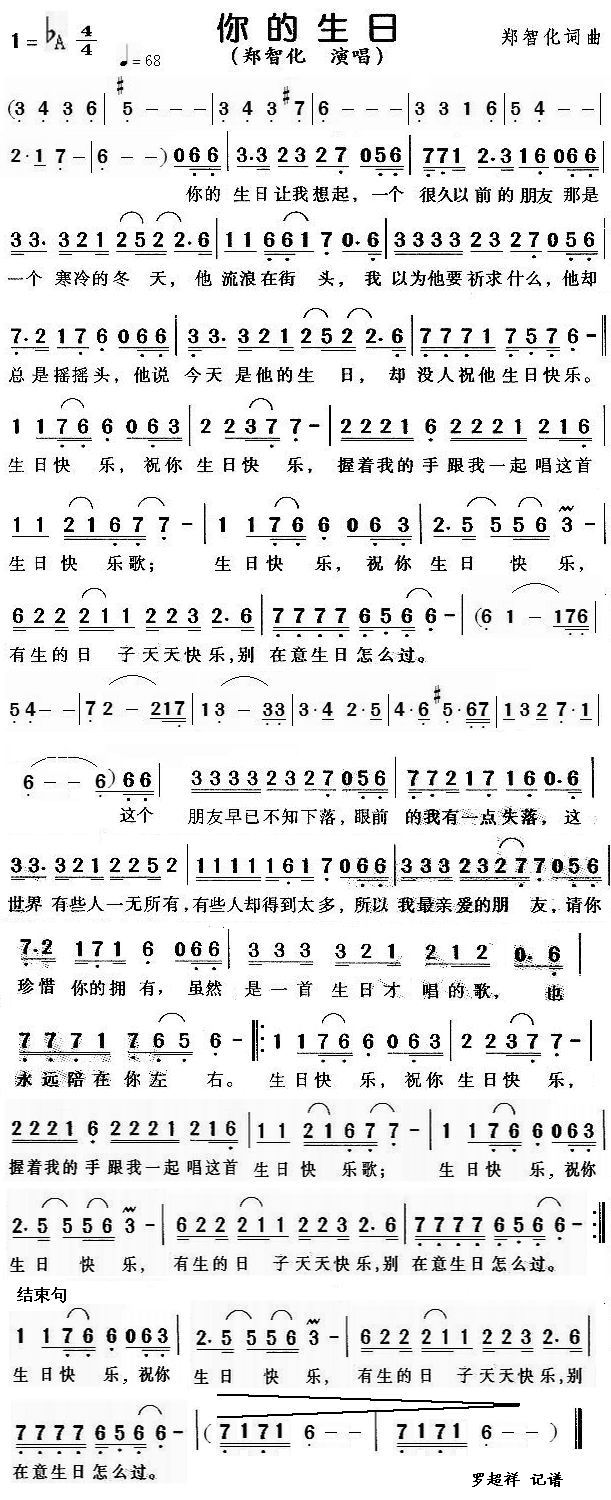 你的生日
1=♭A 4/4 ♩=68 (郑智化 演唱) 郑智化词曲
(3 4 3 6 | #5 - - - | 3 4 3 #7 | 6 - - - | 3 3 1 6 | 5 4 - - |
2·1 7 - | 6 - - ) 0 6 6 | 3·3 2 3 2 7 0 5 6 | 7 7 1 2·3 1 6 0 6 6 |
你的 生日让我想起，一个 很久以前的朋友 那是
3 3· 3 2 1 2 5 2 2·6 | 1 1 6 6 1 7 0·6 | 3 3 3 3 2 3 2 7 0 5 6 |
一个 寒冷的冬 天，他 流浪在街 头，我 以为他要祈求什么，他却
7·2 1 7 6 0 6 6 | 3 3· 3 2 1 2 5 2 2·6 | 7 7 7 1 7 5 7 6 - ||
总是摇摇头，他说 今天 是他的生 日，却 没人祝他生日快乐。
1 1 7 6 6 0 6 3 | 2 2 3 7 7 - | 2 2 2 1 6 2 2 2 1 2 1 6 |
生日快 乐，祝你 生日快 乐，握着我的手跟我一起唱这首
1 1 2 1 6 7 7 - | 1 1 7 6 6 0 6 3 | 2·5 5 5 6 3 - |
生日快 乐歌； 生日快 乐，祝你 生日 快 乐，
6 2 2 2 1 1 2 2 3 2·6 | 7 7 7 7 6 5 6 6 - | (6 1 - 1 7 6 |
有生的日 子天天快乐，别 在意生日怎么过。
5 4 - - | 7 2 - 2 1 7 | 1 3 - 3 3 | 3·4 2·5 | 4·6 #5·6 7 | 1 3 2 7·1 |
6 - - 6) 6 6 3 3 3 3 2 3 2 7 0 5 6 | 7 7 2 1 7 1 6 0·6 |
这个 朋友早已不知下落，眼前 的我有一点失落，这
3 3· 3 2 1 2 2 5 2 | 1 1 1 1 1 6 1 7 0 6 6 | 3 3 3 2 3 2 7 7 0 5 6 |
世界 有些人一无所有，有些人却得到太多，所以 我最亲爱的朋 友，请你
7·2 1 7 1 6 0 6 6 | 3 3 3 3 2 1 2 1 2 0·6 |
珍惜 你的拥 有，虽然 是一首 生日才 唱的歌，也
7 7 7 1 7 6 5 6 - ||: 1 1 7 6 6 0 6 3 | 2 2 3 7 7 - |
永远陪在你左 右。 生日快 乐，祝你生日快 乐，
2 2 2 1 6 2 2 2 1 2 1 6 | 1 1 2 1 6 7 7 - | 1 1 7 6 6 0 6 3 |
握着我的手跟我一起唱这首 生日快 乐歌； 生日快 乐，祝你
2·5 5 5 6 3 - | 6 2 2 2 1 1 2 2 3 2·6 | 7 7 7 7 6 5 6 6 - :||
生日 快 乐，有生的日 子天天快乐，别 在意生日怎么过。
结束句
1 1 7 6 6 0 6 3 | 2·5 5 5 6 3 - | 6 2 2 2 1 1 2 2 3 2·6 |
生日快 乐，祝你 生日 快 乐，有生的日 子天天快乐，别
7 7 7 7 6 5 6 6 - | (7 1 7 1 6 - - | 7 1 7 1 6 - - ) ||
在意生日怎么过。
罗超祥 记谱